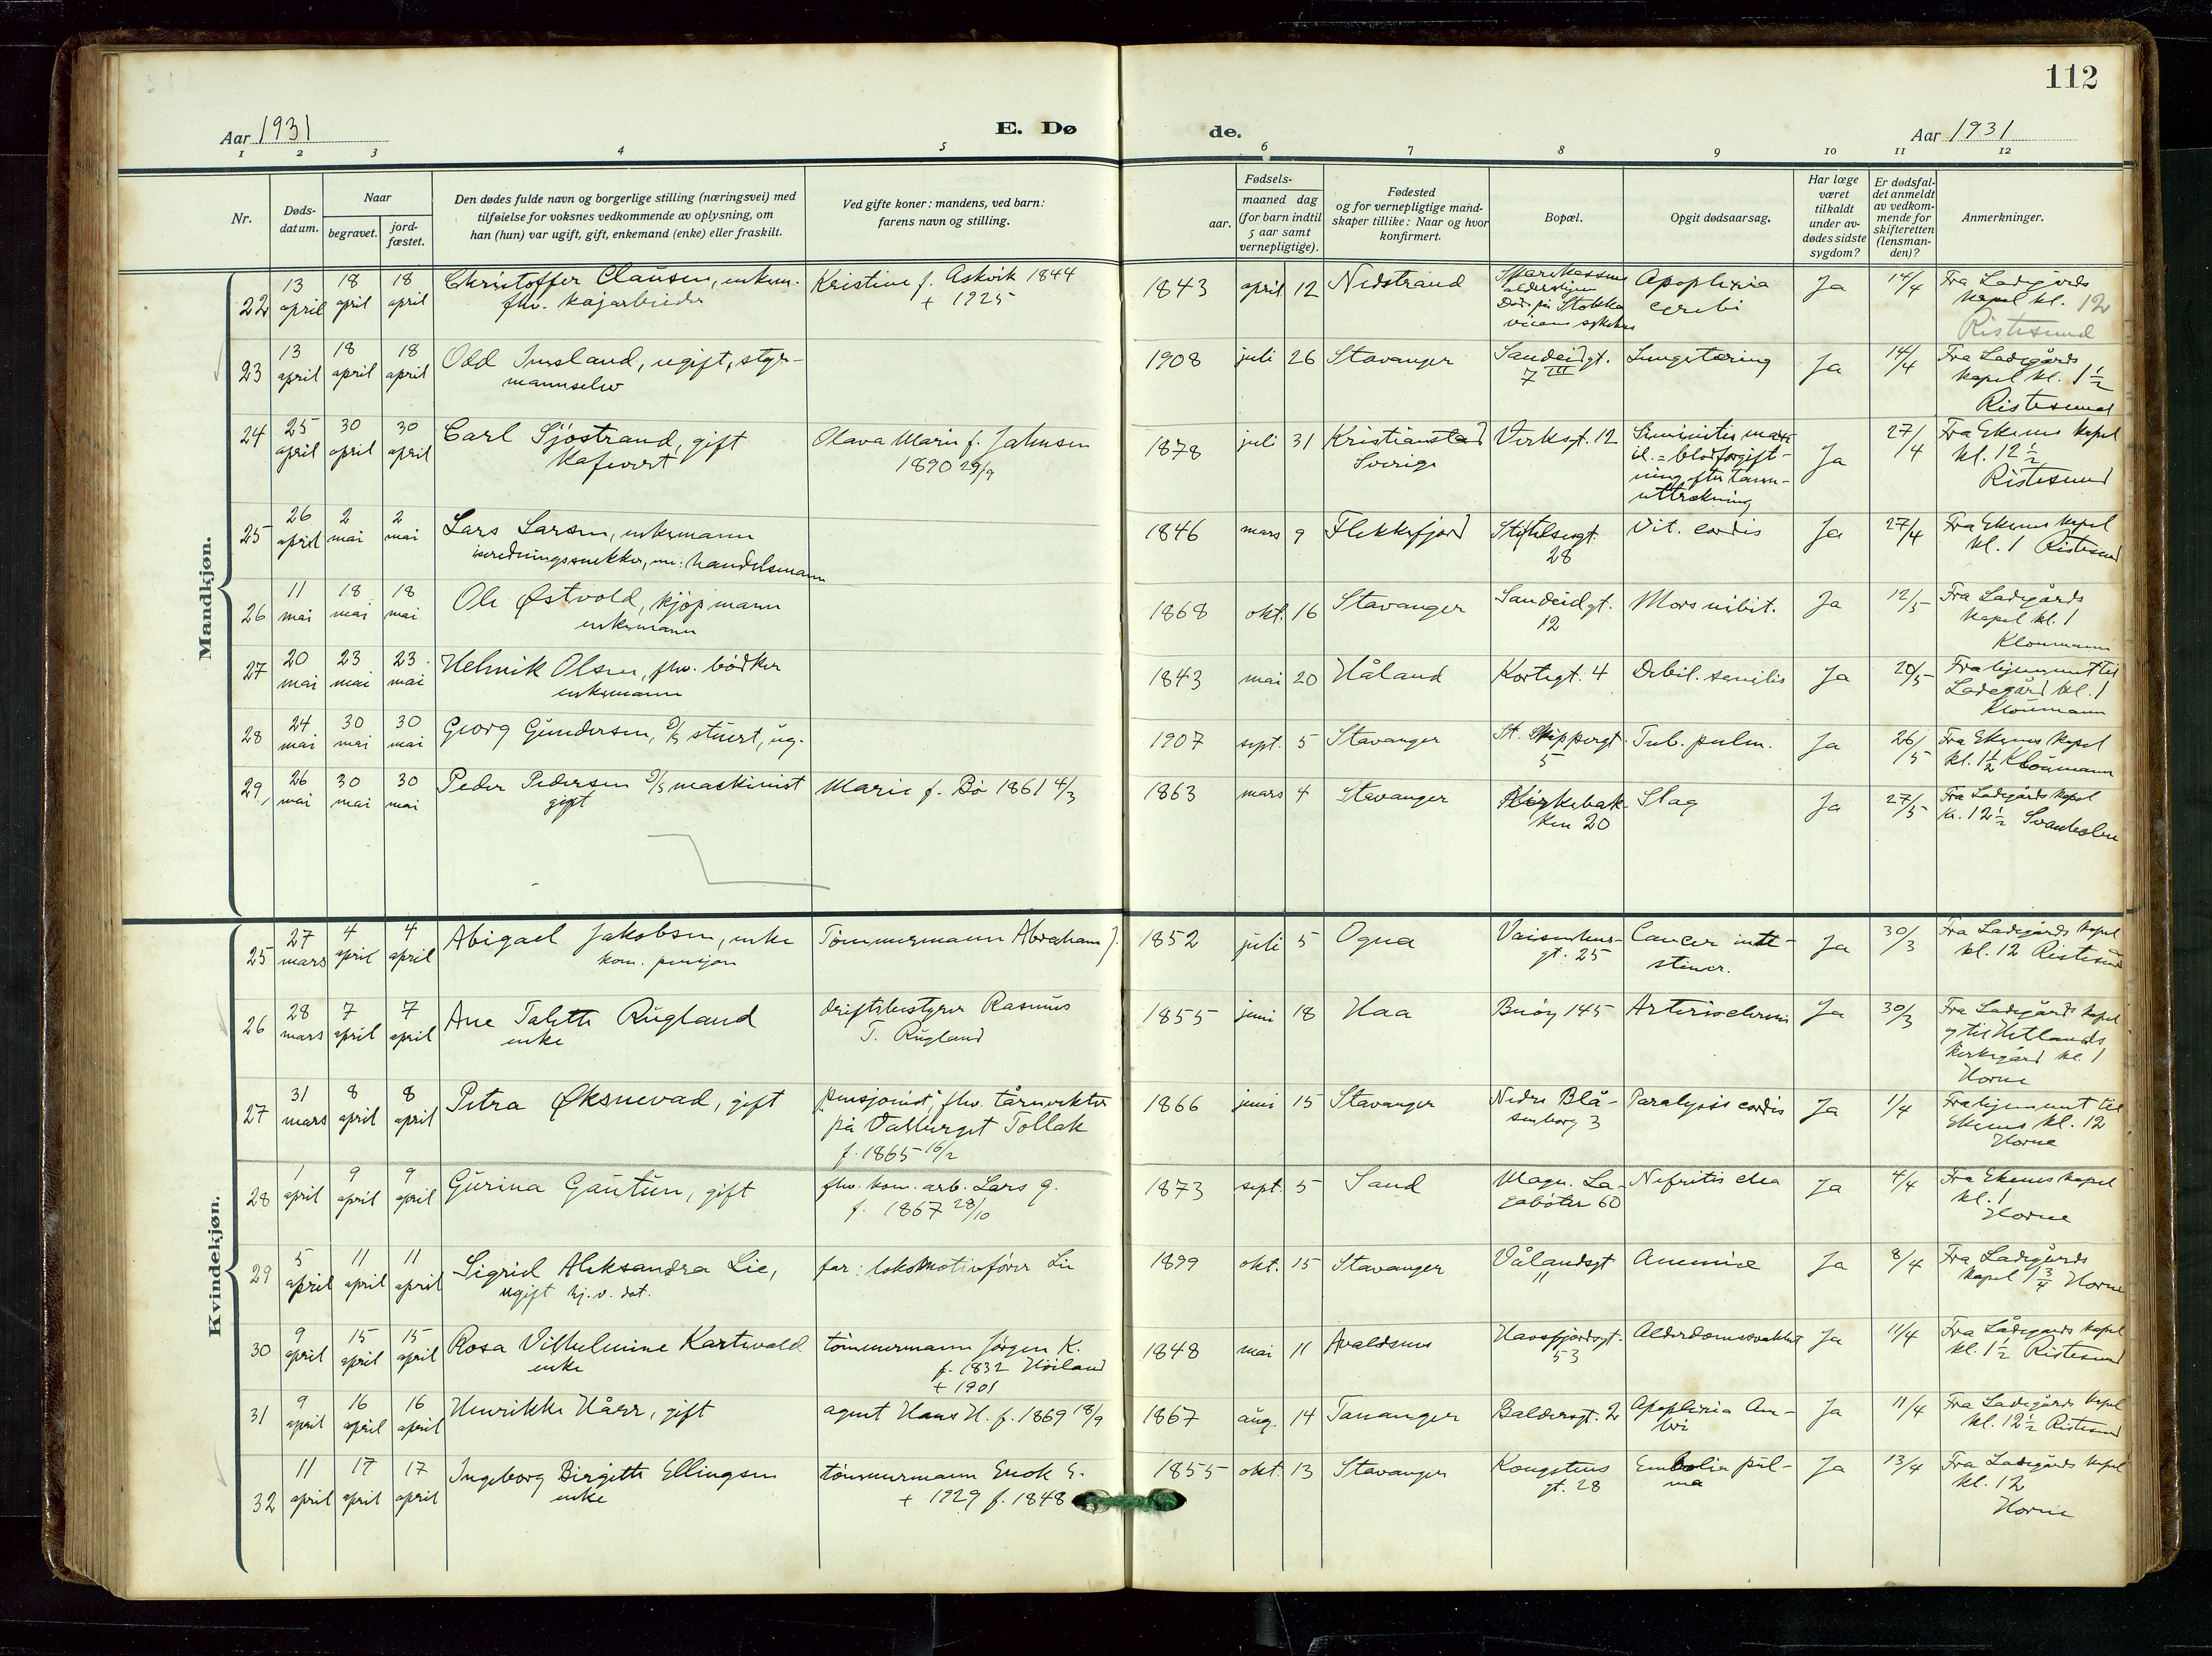 112
Aar 1931
E. Dø
de.
Aar 1931
1 2 3 4 5 6 7 8 9 10 11 12
Nr.
Døds-
datum.
Naar
begravet.
jord-
fæstet.
Den dødes fulde navn og borgerlige stilling (næringsvei) med
tilføielse for voksnes vedkommende av oplysning, om
han (hun) var ugift, gift, enkemand (enke) eller fraskilt.
Ved gifte koner: mandens, ved barn:
farens navn og stilling.
Fødsels-
aar.
maaned dag
(for barn indtil
5 aar samt
vernepligtige).
Fødested
og for vernepligtige mand-
skaper tillike: Naar og hvor
konfirmert.
Bopæl.
Opgit dødsaarsag.
Har læge
været
tilkaldt
under av-
dødes sidste
sygdom?
Er dødsfal-
det anmeldt
av vedkom-
mende for
skifteretten
(lensman-
den)?
Anmerkninger.
Mandkjøn.
22 13 april 18 april 18 april Christoffer Clausen, enkem.
fhv. kajarbeider
Kristine f. Askvik 1844
+ 1925
1843 april 12 Nedstrand
Død på Stokka
Apoplexia
cerebri
Ja 14/4 Fra Ladegårds
kapel kl. 12
Ristesund
23 13 april 18 april 18 april Odd Imsland, ugift, styr-
mannselev
1908 juli 26 Stavanger Sandeidgt.
7 III
Lungetæring Ja 14/4 Fra Ladegårds
kapel kl. 1½
Ristesund
24 25 april 30 april 30 april Carl Sjøstrand, gift
Kafevert
Olava Marie f. Jahnsen
1890 29/9
1878 juli 31 Kristianstad
Sverige
Verksgt. 12
= blodforgift-
ning efter tann-
uttrækning
Ja 27/4 Fra Ekenes kapel
kl. 12½
Ristesund
25 26 april 2 mai 2 mai Lars Larsen, enkemann
inredningssnekker, nu: handelsmann
1846 mars 9 Flekkefjord Stiftelsesgt.
28
Vit. cordis Ja 27/4 Fra Ekenes kapel
kl. 1 Ristesund
26 11 mai 18 mai 18 mai Ole Østvold, kjøpmann
enkemann
1868 okt. 16 Stavanger Sandeidgt.
12
Mors subit. Ja 12/5 Fra Ladegårds
kapel kl. 1
Kloumann
27 20 mai 23 mai 23 mai Helmik Olsen, fhv. bødker
enkemann
1843 mai 20 Håland Kortegt. 4 Debil. senilis Ja 20/5 Fra hjemmet til
Ladegård kl. 1
Kloumann
28 24 mai 30 mai 30 mai Georg Gundersen, D/S stuert, ug.
1907 sept. 5 Stavanger St. Skippergt.
5
Tub. pulm. Ja 26/5 Fra Ekenes kapel
kl. 1½ Kloumann
29 26 mai 30 mai 30 mai Peder Pedersen D/S maskinist
gift
Marie f. Bø 1861 4/3
1863 mars 4 Stavanger Kirkebak-
ken 20
Slag Ja 27/5 Fra Ladegårds kapel
kl. 12½ Svanholm
Kvindekjøn.
25 27 mars 4 april 4 april Abigael Jakobsen, enke
kom. pensjon
Tømmermann Abraham J.
1852 juli 5 Ogna Vaisenhus-
gt. 25
Cancer inte-
stiner.
Ja 30/3 Fra Ladegårds kapel
kl. 12 Ristesund
26 28 mars 7 april 7 april Ane Talette Rugland
enke
driftsbestyrer Rasmus
T. Rugland
1855 juni 18 Haa Buøy 145 Arteriosclerosis Ja 30/3 Fra Ladegårds kapel
og til Hetlands
kirkegård kl. 1
Horne
27 31 mars 8 april 8 april Petra Øksnevad, gift
pensjonist, fhv. tårnvekter
på Valberget Tollak
f. 1865 16/2
1866 juni 15 Stavanger Nedre Blå-
senborg 3
Paralysis cordis Ja 1/4 Fra hjemmet til
Ekenes kl. 12
Horne
28 1 april 9 april 9 april Gurina Gautun, gift
fhv. kom. arb. Lars G.
f. 1867 28/10
1873 sept. 5 Sand Magn. La-
gabøter 60
Nefritis chr. Ja 4/4 Fra Ekenes kapel
kl. 1
Horne
29 5 april 11 april 11 april Sigrid Aleksandra Lie,
ugift hj.v. dat.
far: lokomotivfører Lie
1899 okt. 15 Stavanger Vålandsgt
11
Anemie Ja 8/4 Fra Ladegårds
kapel 1¾ Horne
30 9 april 15 april 15 april Rosa Vilhelmine Kartevold
enke
tømmermann Jørgen K.
f. 1832 Høiland
+ 1901
1848 mai 11 Avaldsnes Havsfjordsgt.
53
Alderdomssvakhet Ja 11/4 Fra Ladegårds kapel
kl. 1½ Ristesund
31 9 april 16 april 16 april Henrikke Hårr, gift
agent Hans H. f. 1869 18/9
1867 aug. 14 Tananger Baldersgt. 2 Apoplexia
Ja 11/4 Fra Ladegårds kapel
kl. 12½ Ristesund
32 11 april 17 april 17 april Ingeborg Birgitte Ellingsen
enke
tømmermann Enok E.
+ 1929 f. 1848
1855 okt. 13 Stavanger Kongstens
gt. 28
Embolia pul-
ma
Ja 13/4 Fra Ladegårds kapel
kl. 12
Horne